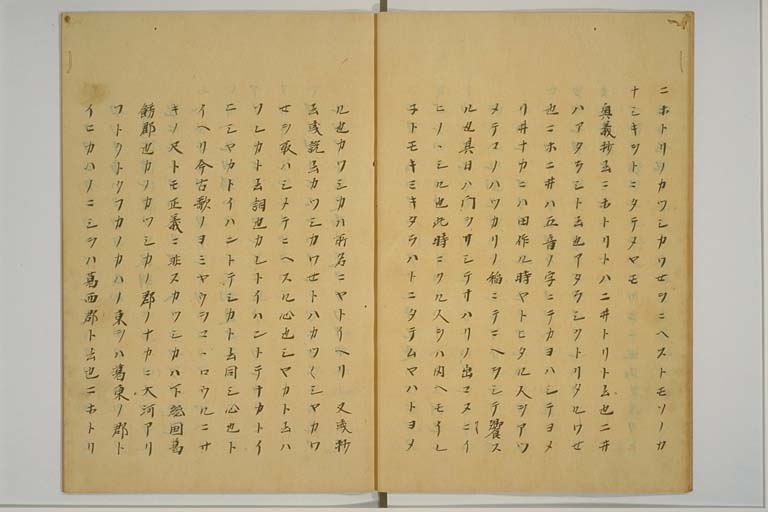 ニホトリノカツシカワセヲニヘストモソノカ
ナシキヲトニタテメヤモ
奥義抄云ニホトリトハニ井トリト云也ニ井
ハアタラシト云也アタラシクトリタルワせ
也ニホニ井ハ五音ノ字ニテカヨハシテヨメ
リ井ナカニハ田作ル時ヤトヒタル人ヲアツ
メテソノハツカリノ稲ニテニヘヲシテ饗ス
ル也其日ハ門ヲサシテオハリノ出マスニイ
ヒノヽシル也此時ニクル人ヲハ内ヘモイレ
子トモキミキタラハトニタテムヤハトヨメ
ル也カツシカハ所名ニヤトイヘリ 又或抄
云或説云カツシカワせトハカツ〱シヤカワ
せヲ取ハシメテニヘスル心也シヤカト云ハ
ソレカト云詞也カレトイハントテナカトイ
ニシヤカトイハントテシカト云同シ心也ト
イヘリ今古歌ノヨミヤウシマヽロウルニサ
キノ尺トモ正義ニ非スカツシカハ下総国葛
餝郡也カノカツシカノ郡ノナカニ大河アリ
フトヰトヰフカノカハノ東ヲハ葛東ノ郡ト
イヒカハノニシヲハ葛西郡ト云也ニホトリ